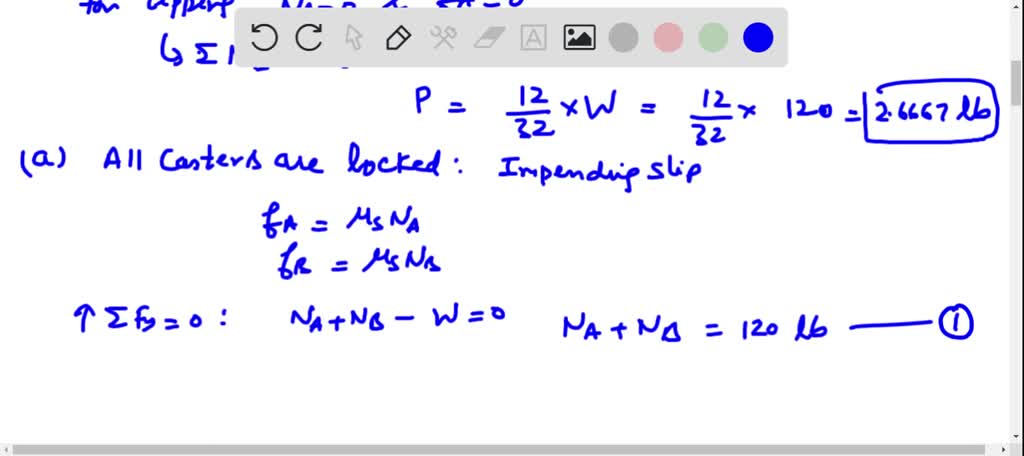 for tipping
↳ Σ
A
P = 12/32 × W = 12/32 × 120 = 2.6667 lb
(a) All Casters are locked: Impending slip
fA = μs NA
fB = μs NB
↑ Σ fy = 0 : NA + NB - W = 0 NA + NB = 120 lb —— ①